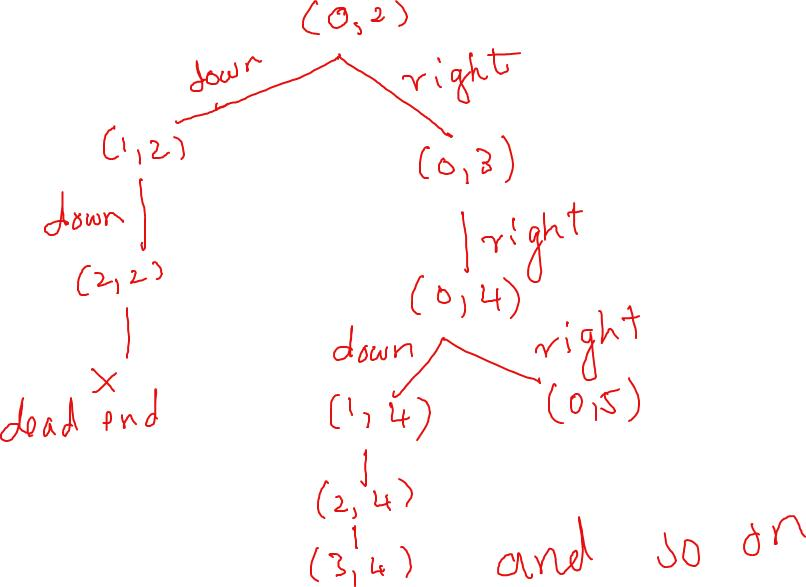 (0,2)
down right
(1,2)
(0,3)
down right
(2,2)
(0,4)
down right
dead end
(1,4) (0,5)
(2,4)
(3,4) and so on